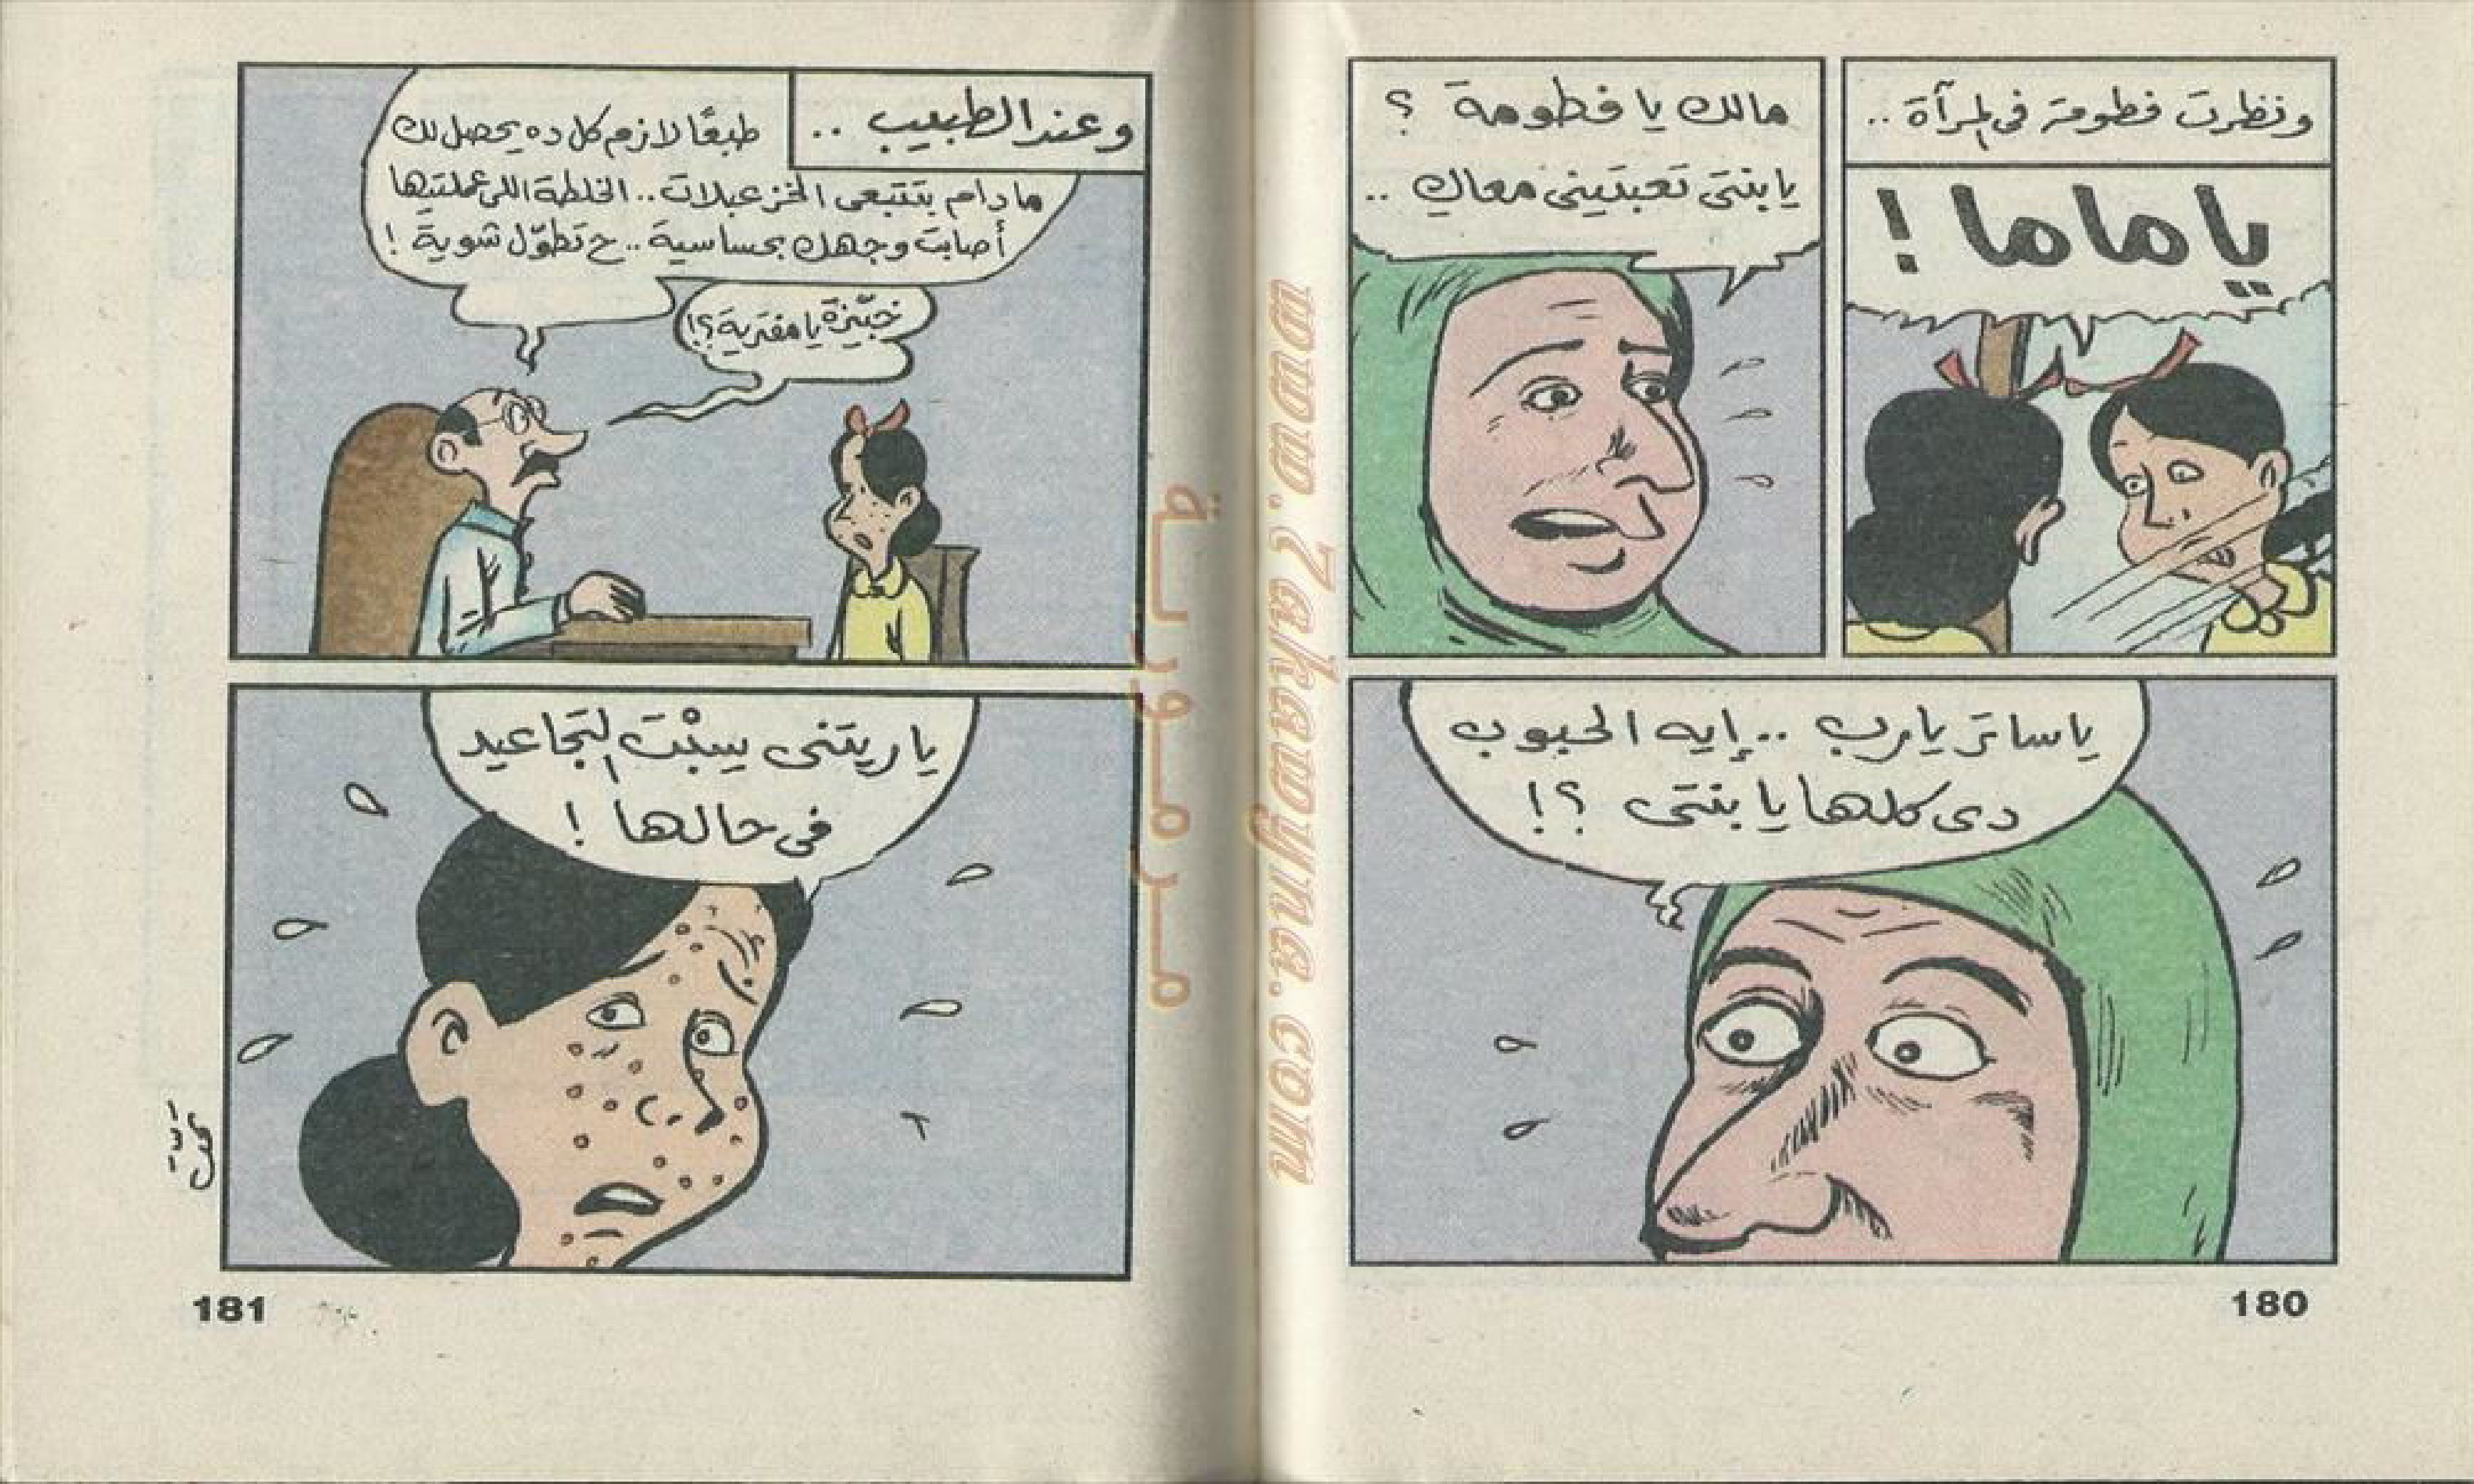 ونظرت فطومة فى المرآة ..
ياماما !
مالك يا فطومة ؟
يا بنتى تعبتينى معاكِ ..
ياساتر يارب .. إيه الحبوب
دى كلها يا بنتى ؟!
180
وعند الطبيب ..
طبعًا لازم كل ده يحصل لك
مادام بتتبعى الخزعبلات .. الخلطة اللى عملتيها
أصابت وجهك بحساسية .. ح تطوّل شوية !
خبّيزة يا مفترية ؟!
ياريتنى سِبْت التجاعيد
فى حالها !
181
www.Zakawyna.com